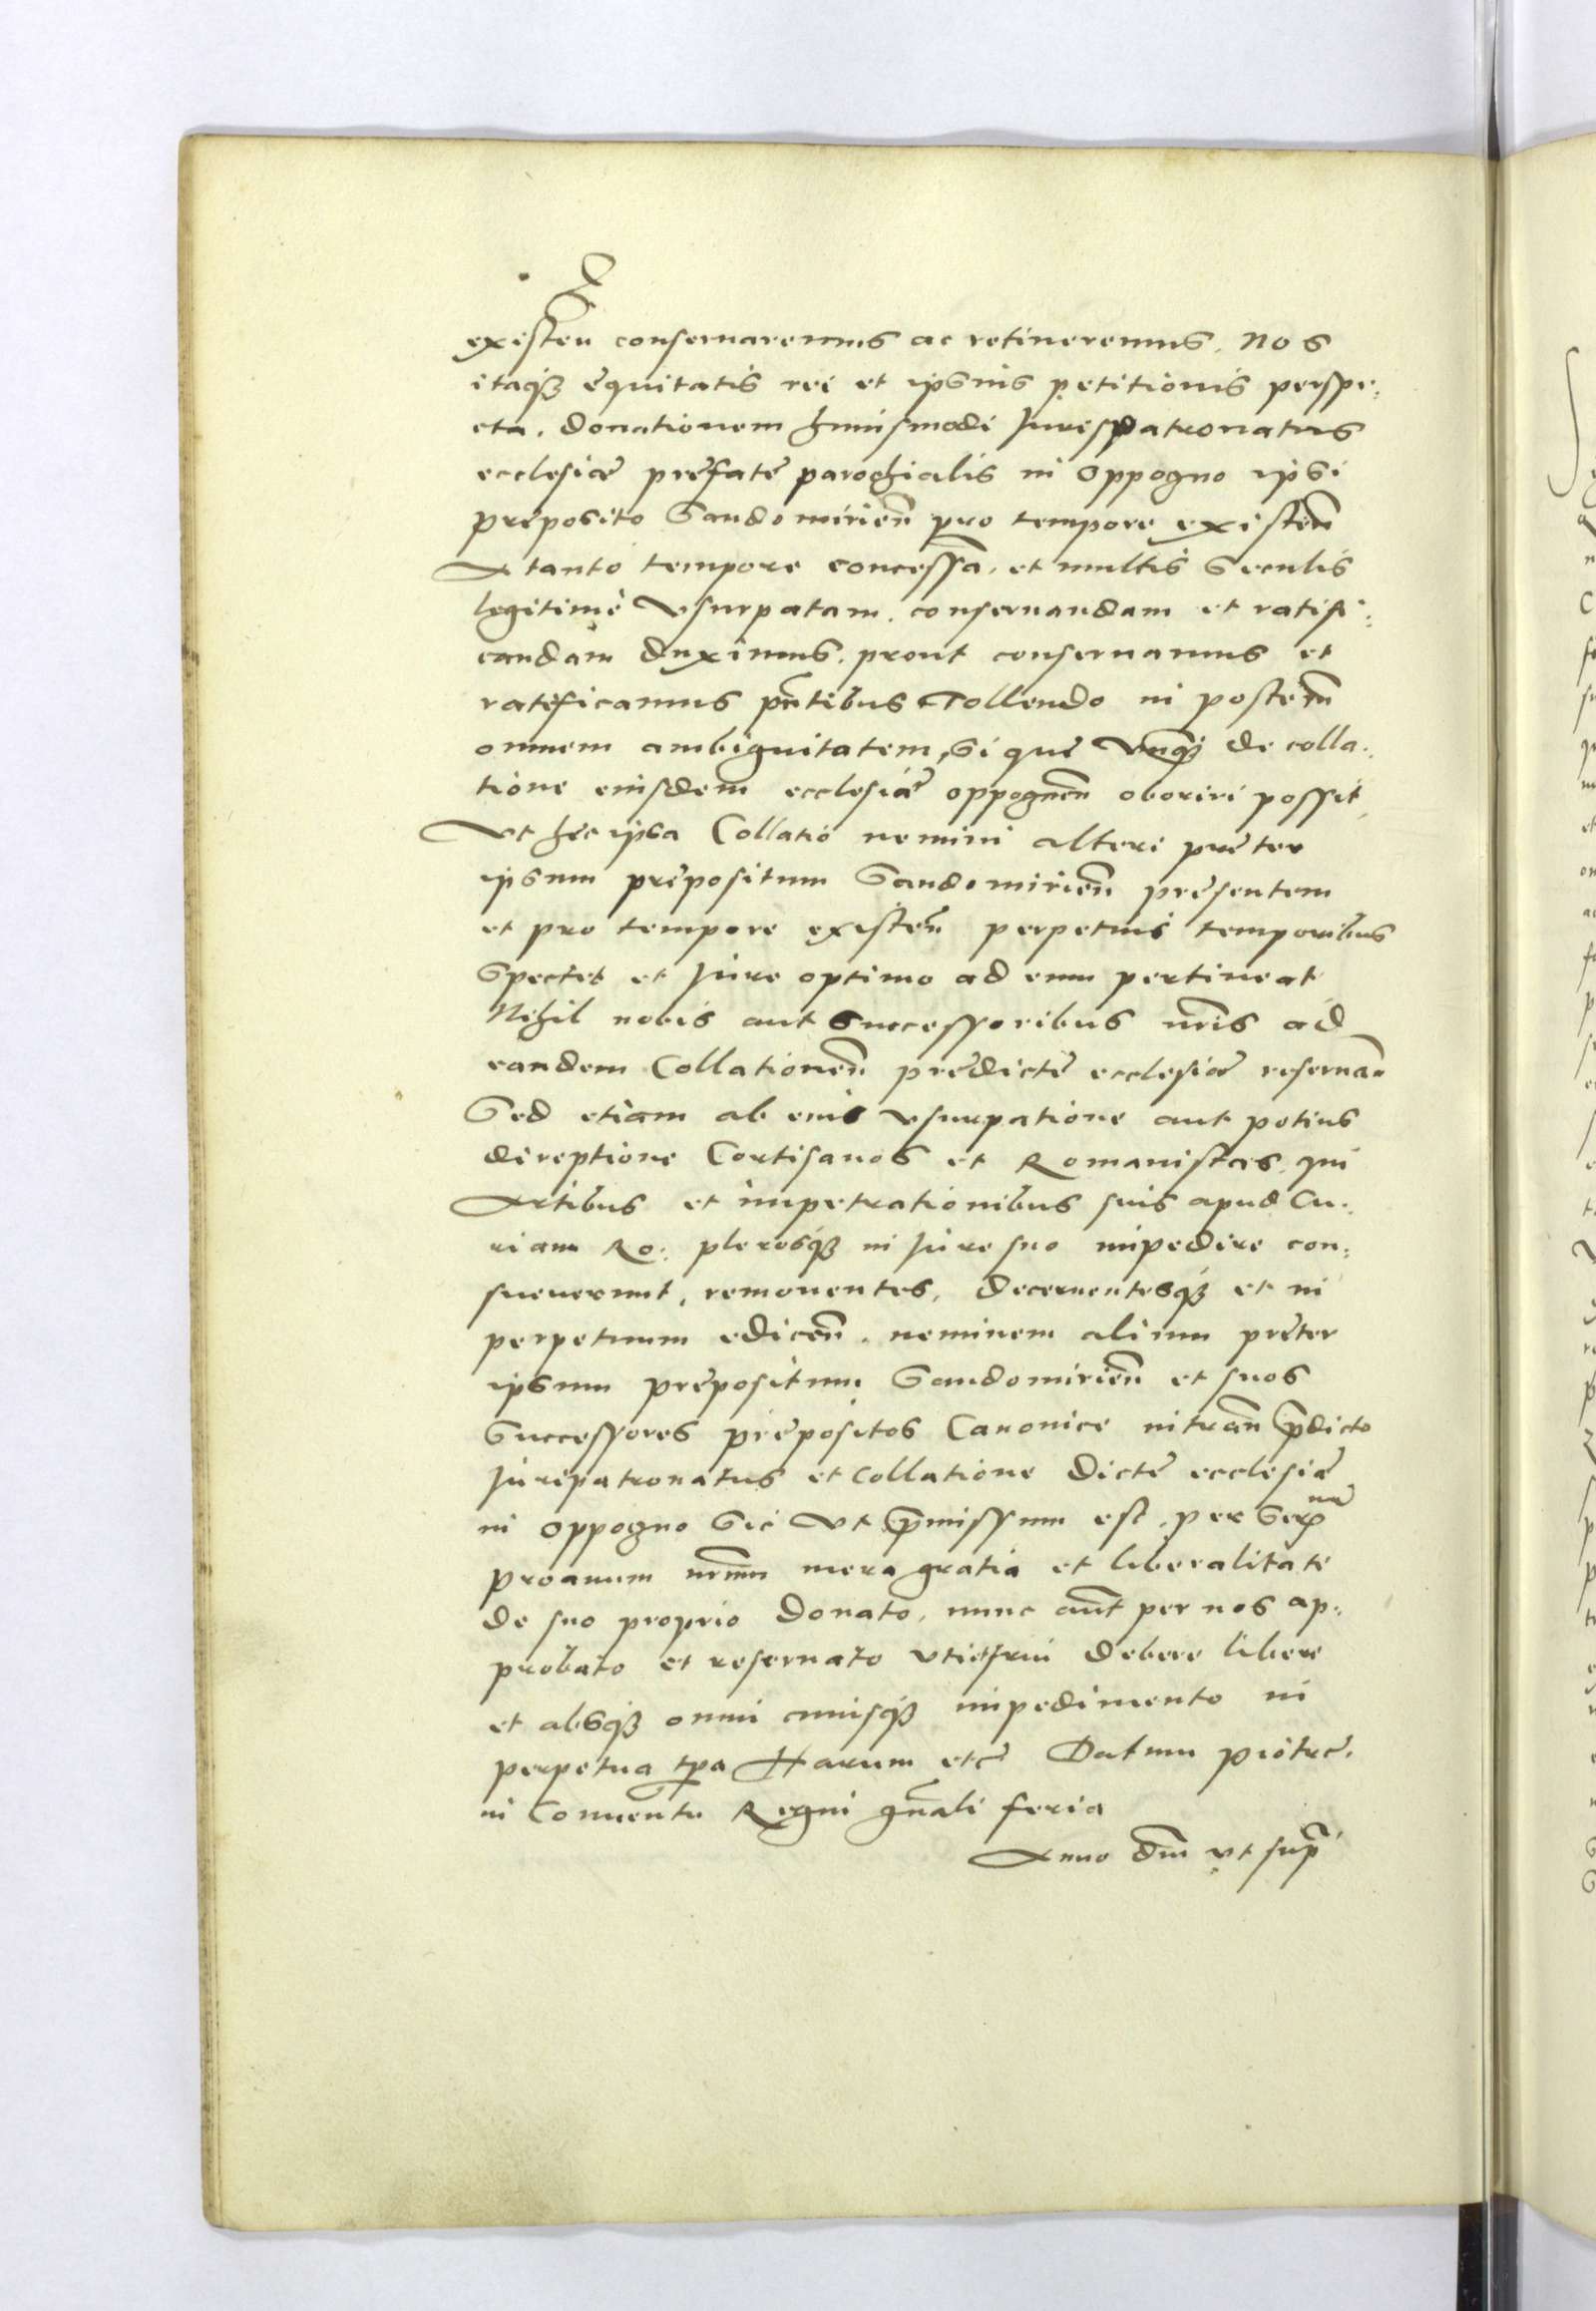 existen conseruaremus ac retineremus. Nos
itaqꝫ ęquitatis rei et ipsius petitionis perspe:
cta. donationem huiusmodi Jurispatronatus
ecclesiæ prefatę parochialis in Oppogno ipsi
pręposito Sandomirien̄ pro tempore existen̄
A tanto tempore concessā. et multis Seculis
legitimè Vsurpatam. conseruandam et ratifi:
candam duximus. prout conseruamus et
ratificamus pn̄tibus Tollendo in posterū
omnem ambiguitatem, Si quę Vnqꝫ de colla:
tione eiusdem ecclesiæ oppognen̄ oboriri possit,
Vt hęc ipsa Collatio nemini alteri pręter
ipsum prępositum Sandomirien̄ pręsentem
et pro tempore existen̄ perpetuis temporibus
Spectet et Jure optimo ad eum pertineat
Nihil nobis aut Successoribus nr̄is ad
eandem Collationem̄ prędictę ecclesiæ reseruan̄
Sed etiam ab eius vsurpatione aut potius
direptione Cortisanos et Romanistas. qui
Artibus et impetrationibus suis apud Cu:
riam Ro: plerosqꝫ in Jure suo impedire con:
sueuerunt, remouentes, decernentesqꝫ et in
perpetuum edicen̄. neminem alium pręter
ipsum prępositum Sandomirien̄ et suos
Successores prępositos Canonice intran̄ p̄dicto
Jurepatronatus et Collatione dictę ecclesiæ
in Oppogno Sic Vt p̄missum est, per Ser
proauum nr̄um mera gratia et liberalitate
de suo proprio donato, nunc aūt per nos ap:
probato et reseruato vti et frui debere libere
et absqꝫ omni cuiusqꝫ impedimento in
perpetua tp̄a Harum etc̄ Datum piotrc.
in Conuentu Regni gn̄ali feria
Anno dn̄i vt sup̄